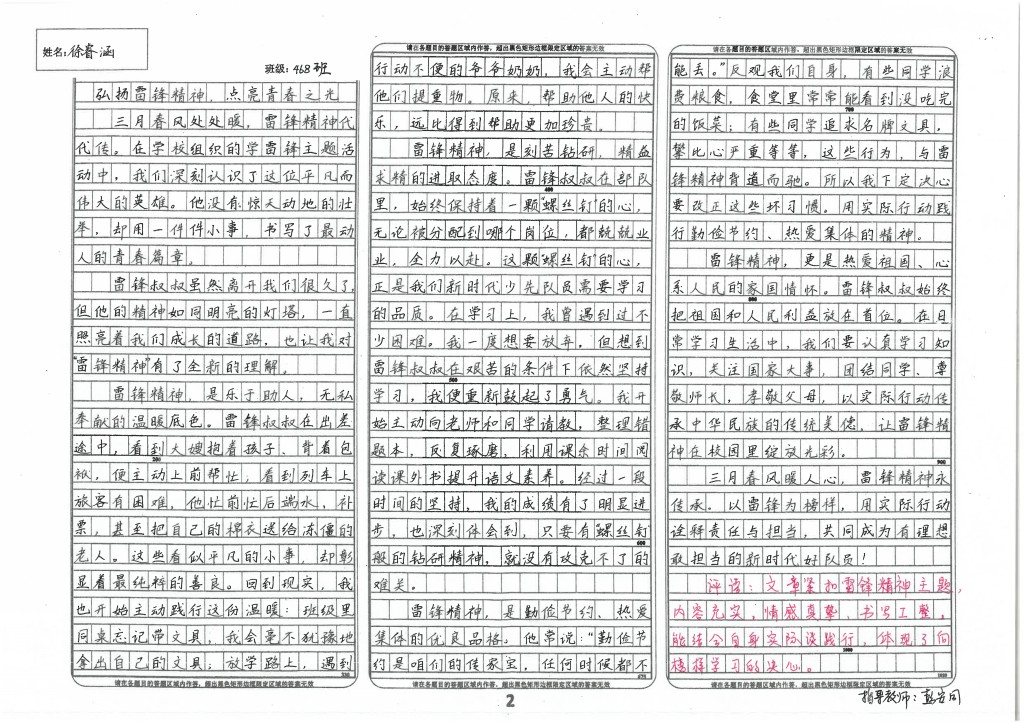 姓名:徐睿涵
班级:468班
弘扬雷锋精神，点亮青春之光
三月春风处处暖，雷锋精神代
代传。在学校组织的学雷锋主题活
动中，我们深刻认识了这位平凡而
伟大的英雄。他没有惊天动地的壮
举，却用一件件小事，书写了最动
人的青春篇章。
雷锋叔叔虽然离开我们很久了，
但他的精神如同明亮的灯塔，一直
照亮着我们成长的道路，也让我对
"雷锋精神"有了全新的理解。
雷锋精神，是乐于助人，无私
奉献的温暖底色。雷锋叔叔在出差
途中，看到大嫂抱着孩子、背着包
200
袱，便主动上前帮忙，看到列车上
旅客有困难，他忙前忙后端水、补
票，甚至把自己的棉衣送给冻僵的
老人。这些看似平凡的小事，却彰
显着最纯粹的善良。回到现实，我
也开始主动践行这份温暖：班级里
同桌忘记带文具，我会毫不犹豫地
拿出自己的文具；放学路上，遇到
请在各题目的答题区域内作答，超出黑色矩形边框限定区域的答案无效
请在各题目的答题区域内作答，超出黑色矩形边框限定区域的答案无效
行动不便的爷爷奶奶，我会主动帮
他们提重物。原来，帮助他人的快
乐，远比得到帮助更加珍贵。
雷锋精神，是刻苦钻研，精益
求精的进取态度。雷锋叔叔在部队
400
里，始终保持着一颗"螺丝钉"的心，
无论被分配到哪个岗位，都兢兢业
业，全力以赴。这颗"螺丝钉"的心，
正是我们新时代少先队员需要学习
的品质。在学习上，我曾遇到过不
少困难。我一度想要放弃，但想到
雷锋叔叔在艰苦的条件下依然坚持
500
学习，我便重新鼓起了勇气。我开
始主动向老师和同学请教，整理错
题本，反复琢磨，利用课余时间阅
读课外书提升语文素养。经过一段
时间的坚持，我的成绩有了明显进
步，也深刻体会到，只要有"螺丝钉"
600
般的钻研精神，就没有攻克不了的
难关。
雷锋精神，是勤俭节约、热爱
集体的优良品格。他常说："勤俭节
约是咱们的传家宝，任何时候都不
请在各题目的答题区域内作答，超出黑色矩形边框限定区域的答案无效
2
请在各题目的答题区域内作答，超出黑色矩形边框限定区域的答案无效
能丢。"反观我们自身，有些同学浪
费粮食，食堂里常常能看到没吃完
700
的饭菜；有些同学追求名牌文具，
攀比心严重等等，这些行为，与雷
锋精神背道而驰。所以我下定决心
要改正这些坏习惯。用实际行动践
行勤俭节约、热爱集体的精神。
雷锋精神，更是热爱祖国、心
系人民的家国情怀。雷锋叔叔始终
800
把祖国和人民利益放在首位。在日
常学习生活中，我们要认真学习知
识，关注国家大事，团结同学、尊
敬师长，孝敬父母，以实际行动传
承中华民族的传统美德，让雷锋精
神在校园里绽放光彩。
900
三月春风暖人心，雷锋精神永
传承。以雷锋为榜样，用实际行动
诠释责任与担当，共同成为有理想
敢担当的新时代好队员！
评语：文章紧扣雷锋精神主题，
内容充实，情感真挚、书写工整。
能结合自身实际谈践行，体现了向
1000
榜样学习的决心。
请在各题目的答题区域内作答，超出黑色矩形边框限定区域的答案无效
指导教师：